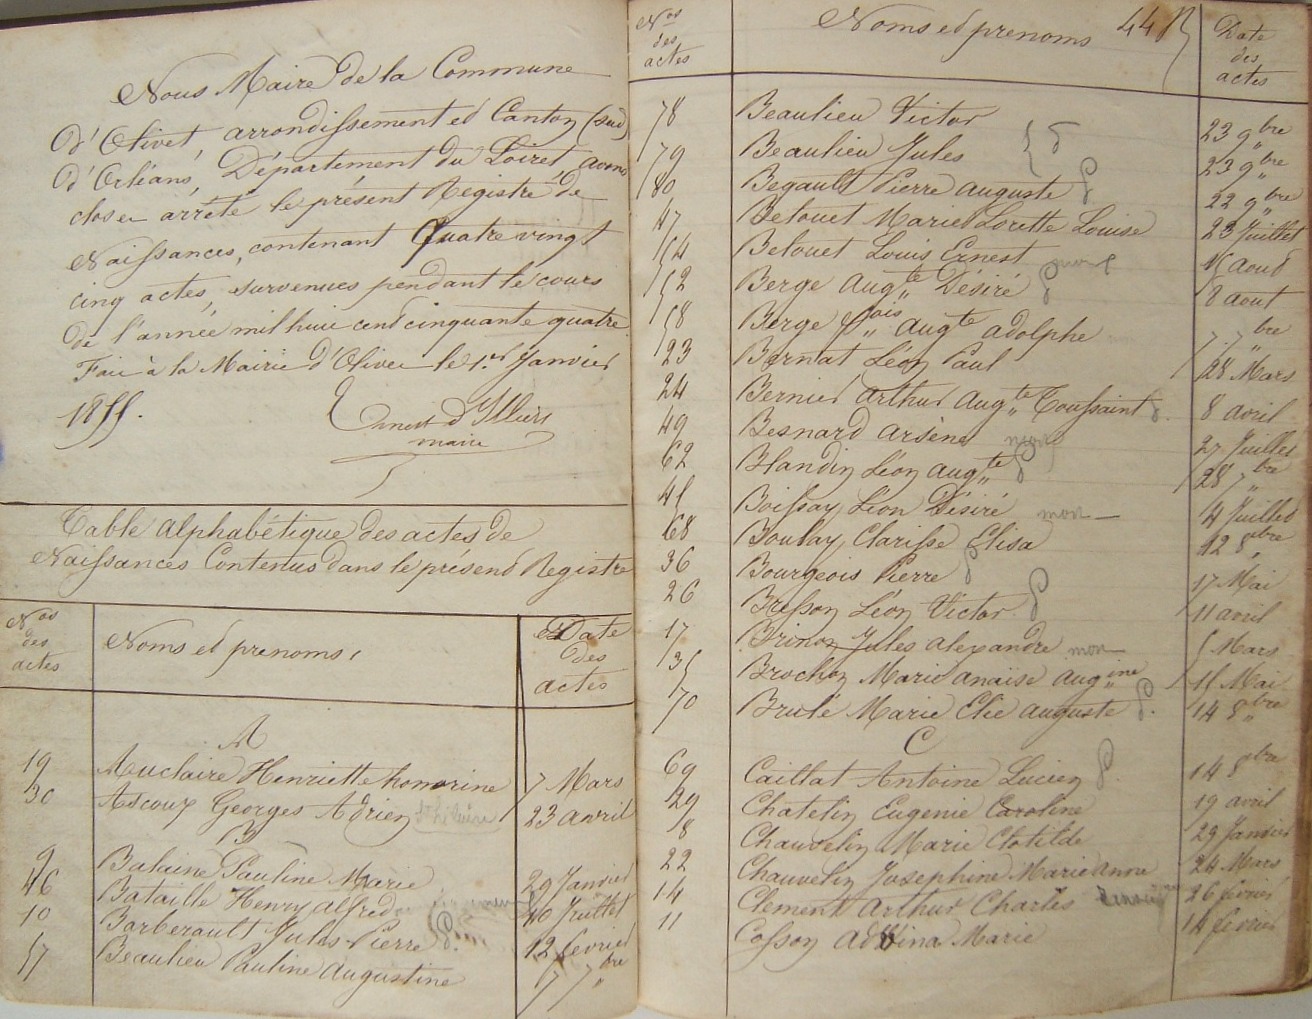 Nous Maire de la Commune
d'Olivet, arrondissement et Canton (sud)
d'Orléans, Département du Loiret avons
clos et arrêté le présent Registre de
Naissances, contenant Quatre vingt
cinq actes, survenues pendant le cours
de l'année mil huit cent cinquante quatre
Fait à la Mairie d'Olivet le 1er Janvier
1855.
Ernest d'Illiers
maire
Table Alphabétique des actes de
Naissances Contenus dans le présent Registre
Nos des actes
Noms et prenoms,
Date des actes
A
19 Auclaire Henriette honorine 7 Mars
30 Ascoux Georges Adrien 23 avril
B
9 Balaine Pauline Marie 29 Janvier
46 Bataille Henry alfred 10 Juillet
10 Barberault Jules Pierre 12 fevrier
57 Beaulieu Pauline Augustine 7bre
Nos des actes
Noms et prenoms
44
Date des actes
78 Beaulieu Victor 23 9bre
79 Beaulieu Jules 23 9bre
80 Begault Pierre auguste 22 9bre
47 Belouet Marie Lorette Louise 23 Juillet
54 Belouet Louis Ernest 15 aout
52 Berge Augte Désiré 8 aout
58 Berge fois augte adolphe 7. 7bre
23 Bernat Léon Paul 28 Mars
24 Bernier Arthur Augte Toussaint 8 avril
49 Besnard Arsène 27 Juillet
62 Blandin Léon Augte 28 7bre
45 Boissay Léon Désiré mort 4 Juillet
68 Boulay Clarisse Elisa 12 8bre
36 Bourgeois Pierre 17 Mai
26 Bresson Léon Victor 11 avril
17 Brinon Jules alexandre mort 5 Mars
35 Brochon Marie anaïse augine 15 Mai
70 Brulé Marie Elie auguste 14 8bre
C
69 Caillat Antoine Lucien 14 8bre
29 Chatelin Eugenie Caroline 19 avril
8 Chauvelin Marie Clotilde 29 Janvier
22 Chauvelin Joséphine Marie Anne 24 Mars
14 Clement Arthur Charles 26 fevrier
11 Cosson Marie 14 fevrier